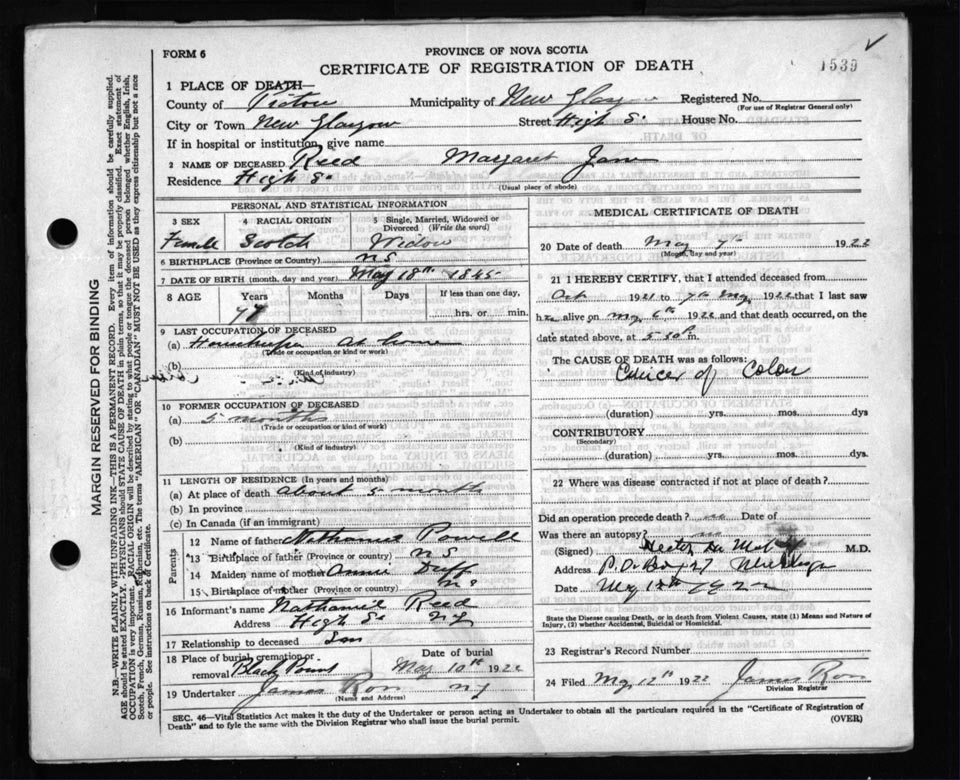 FORM 6
PROVINCE OF NOVA SCOTIA
CERTIFICATE OF REGISTRATION OF DEATH
1539
1 PLACE OF DEATH—
County of Pictou Municipality of New Glasgow Registered No.
(For use of Registrar General only)
City or Town New Glasgow Street High St House No.
If in hospital or institution, give name
2 NAME OF DECEASED Reed Margaret Jane
Residence High St
(Usual place of abode)
PERSONAL AND STATISTICAL INFORMATION
3 SEX 4 RACIAL ORIGIN 5 Single, Married, Widowed or Divorced (Write the word)
Female Scotch Widow
6 BIRTHPLACE (Province or Country) N S
7 DATE OF BIRTH (month, day and year) May 18th 1845
8 AGE Years Months Days If less than one day,
77 hrs. or min.
9 LAST OCCUPATION OF DECEASED
(a) Housekeeper At home
(Trade or occupation or kind or work)
(b)
(Kind of industry)
10 FORMER OCCUPATION OF DECEASED
(a) 5 months
(Trade or occupation or kind of work)
(b)
(Kind of industry)
11 LENGTH OF RESIDENCE (In years and months)
(a) At place of death about 5 month
(b) In province
(c) In Canada (if an immigrant)
Parents
12 Name of father Nathaniel Powell
13 Birthplace of father (Province or country) N S
14 Maiden name of mother Annie Duff
15 Birthplace of mother (Province or country) N S
16 Informant's name Nathaniel Reed
Address High St N G
17 Relationship to deceased Son
18 Place of burial, cremation or removal Black Point Date of burial May 10th 1922
19 Undertaker James Ross N G
(Name and Address)
MEDICAL CERTIFICATE OF DEATH
20 Date of death May 7th 1922
(Month, day and year)
21 I HEREBY CERTIFY, that I attended deceased from
Oct 1921 to 7th May 1922 that I last saw
her alive on May 6th 1922 and that death occurred, on the
date stated above, at 5-30 P.m.
The CAUSE OF DEATH was as follows:
Cancer of Colon
(duration) yrs. mos. dys
CONTRIBUTORY
(Secondary)
(duration) yrs. mos. dys.
22 Where was disease contracted if not at place of death?
Did an operation precede death? no Date of
Was there an autopsy? no
(Signed) Hector M.D.
Address P. O. Box 27 New Glasgow
Date May 12th 1922
State the Disease causing Death, or in death from Violent Causes, state (1) Means and Nature of Injury, (2) whether Accidental, Suicidal or Homicidal.
23 Registrar's Record Number
24 Filed May 12th 1922 James Ross
Division Registrar
SEC. 46—Vital Statistics Act makes it the duty of the Undertaker or person acting as Undertaker to obtain all the particulars required in the "Certificate of Registration of
Death" and to fyle the same with the Division Registrar who shall issue the burial permit.
(OVER)
MARGIN RESERVED FOR BINDING
N.B.—WRITE PLAINLY WITH UNFADING INK—THIS IS A PERMANENT RECORD. Every item of information should be carefully supplied.
AGE should be stated EXACTLY. PHYSICIANS should STATE CAUSE OF DEATH in plain terms, so that it may be properly classified. Exact statement of
OCCUPATION is very important. RACIAL ORIGIN will be described by stating to what people or tongue the deceased person belonged whether English, Irish,
Scotch, French, German, Russian, Ruthenian, etc. The terms "AMERICAN" OR "CANADIAN" MUST NOT BE USED as they express citizenship but not a race
or people. See instructions on back of Certificate.